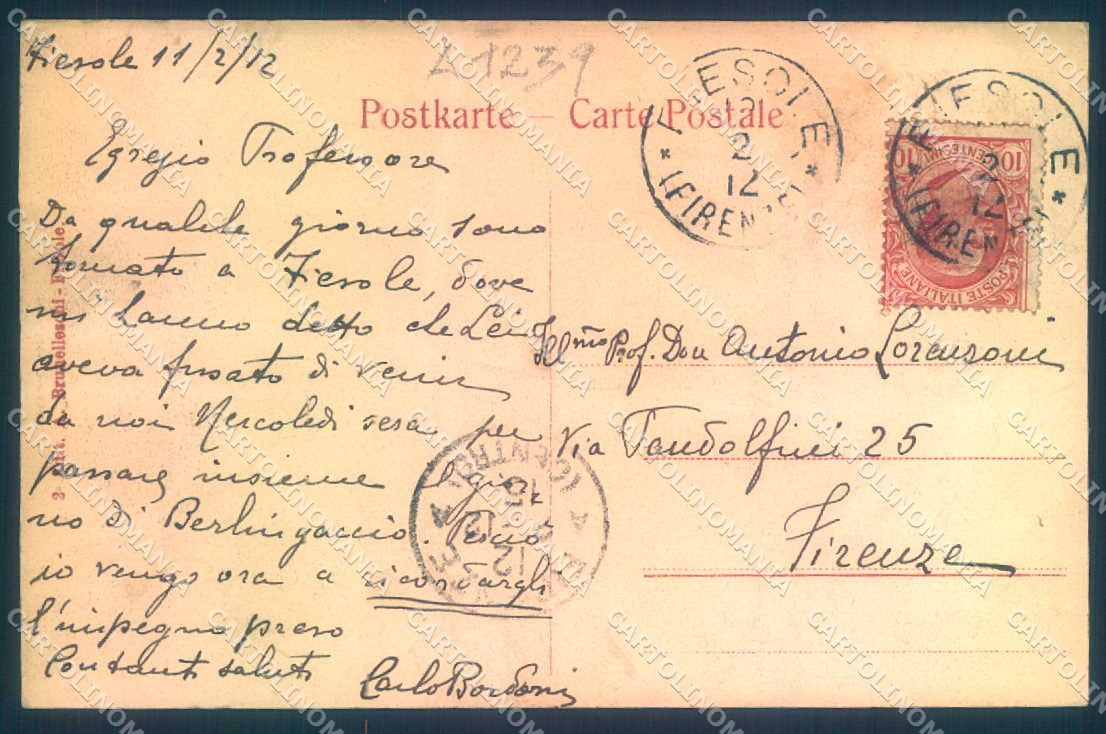 Fiesole 11/2/12
A1239
Postkarte — Carte Postale
Egregio Professore
Da qualche giorno sono
tornato a Fiesole, dove
mi hanno detto che Lei
aveva fissato di venir
da noi Mercoledì sera per
passare insieme il gior
no di Berlingaccio. Perciò
io vengo ora a ricordargli
l'impegno preso
Costanti saluti
Carlo Bordoni
Ill.mo Prof. Don Antonio Lorenzoni
Via Pandolfini 25
Firenze
FIESOLE
12
2
12
* (FIRENZE) *
FIESOLE
12
* (FIREN
10 CENTESIMI 10
POSTE ITALIANE
(CENTRO)
15
12
2 - Edit. Brunelleschi - Fiesole
CARTOLINOMANIA